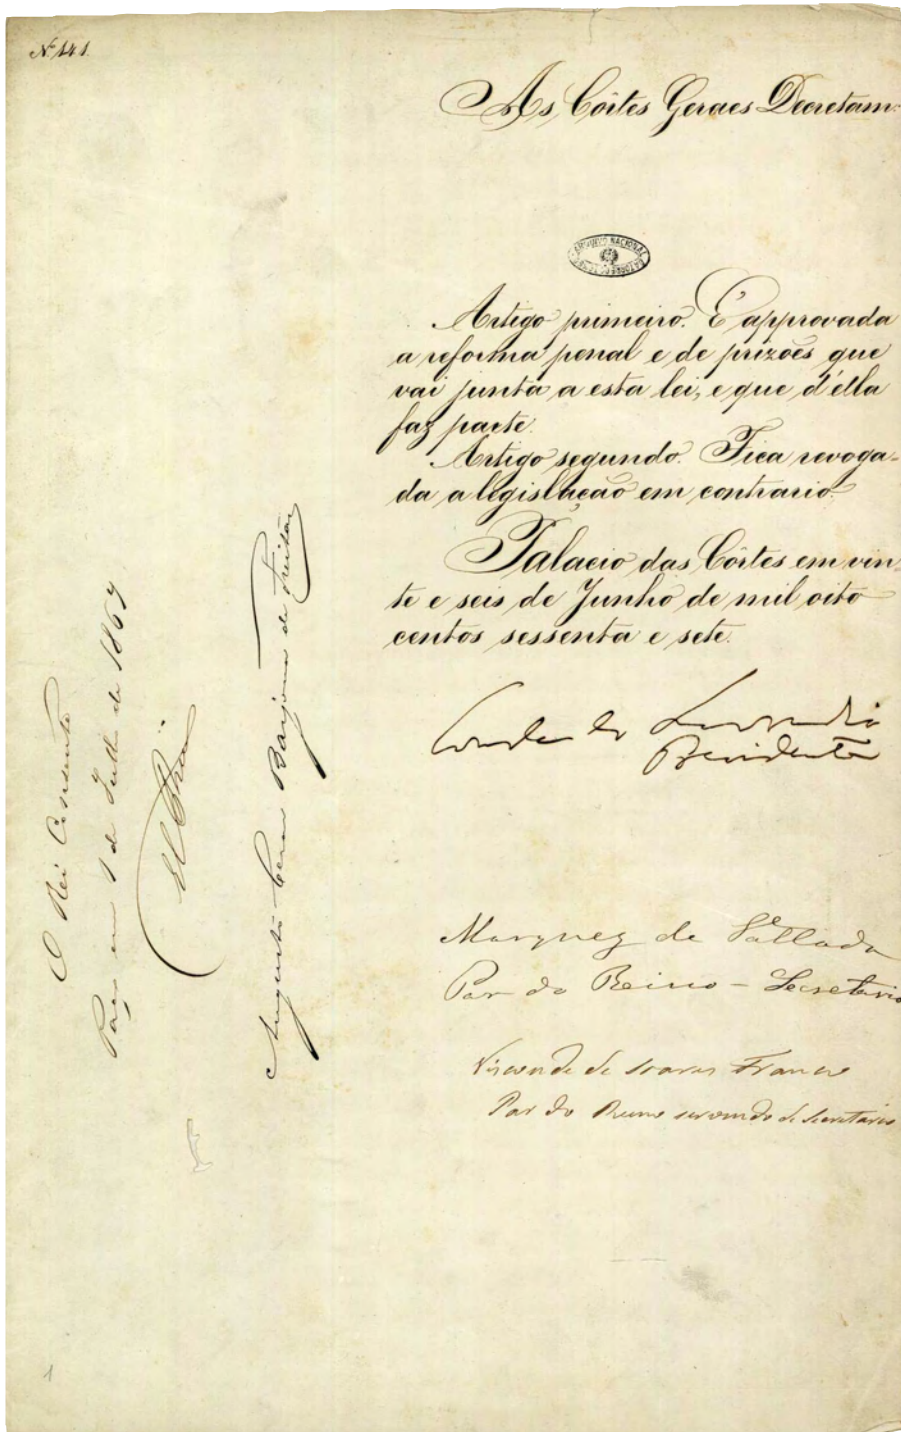 Nº 141.
As Côrtes Geraes Decretam:
ARQUIVO NACIONAL
Artigo primeiro. É approvada
a reforma penal e de prizões que
vai junta a esta lei, e que d'élla
faz parte.
Artigo segundo. Fica revoga-
da a legislação em contrario.
Palacio das Côrtes em vin
te e seis de Junho de mil oito
centos sessenta e sete.
Conde de Lavradio
Presidente
Marquez de Vallada
Par do Reino – Secretario
Visconde de Soares Franco
Par do Reino servindo de Secretario
O Rei Consente
Paço em 1 de Julho de 1867
El Rei
Augusto Cesar Barjona de Freitas
1